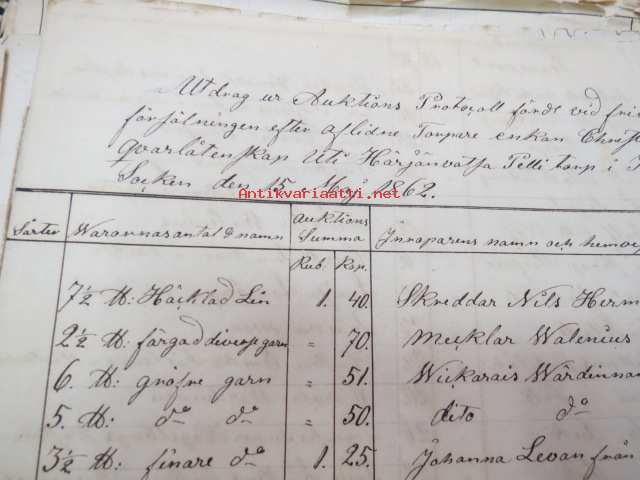 Utdrag ur Auktions Protocoll fördt vid fri
försälningen efter aflidne Torpare enkan Chris
qvarlåtenskap Uti Härjänvatsa Pelli torp i
Soçken den 15 Maj 1862.
Antikvariaatti.net
Warornas antal & namn Auktions Summa Innroparens namn och hemo
Rub. Kop.
7½ ℔: Häcklad Lin 1. 40. Skreddar Nils Herm
2½ ℔: färgad diverse garn " 70. Mecklar Walenius
6. ℔: gröfre garn " 51. Wickarais Wärdinnan
5. ℔: do do " 50. dito do
3½ ℔: finare do 1. 25. Johanna Levan från